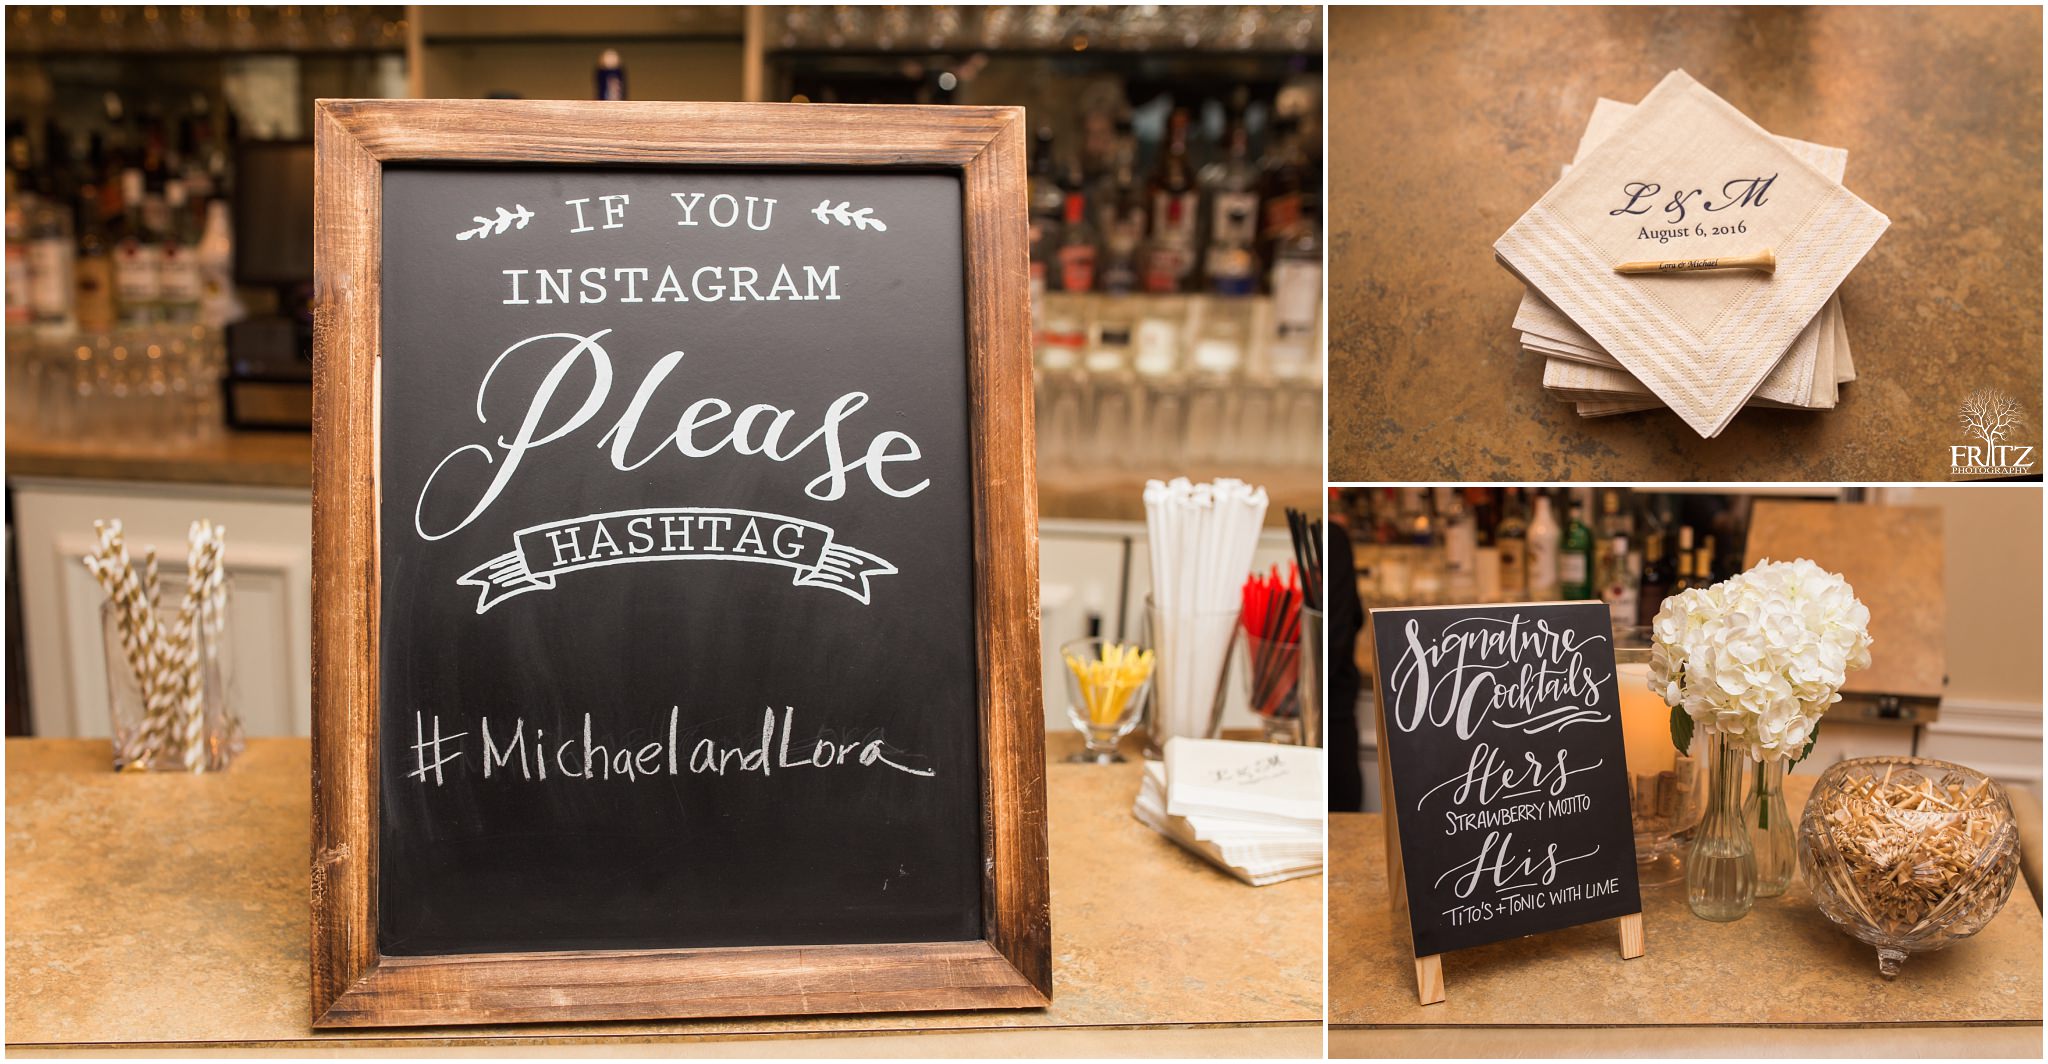 IF YOU
INSTAGRAM
Please
HASHTAG
#MichaelandLora
L & M
L & M
August 6, 2016
Lora & Michael
FRITZ
PHOTOGRAPHY
Signature
Cocktails
Hers
STRAWBERRY MOJITO
His
TITO'S + TONIC WITH LIME